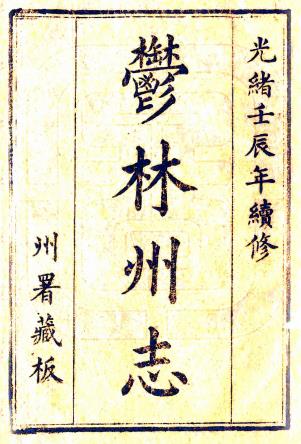 光緒壬辰年續修
鬱林州志
州署藏板